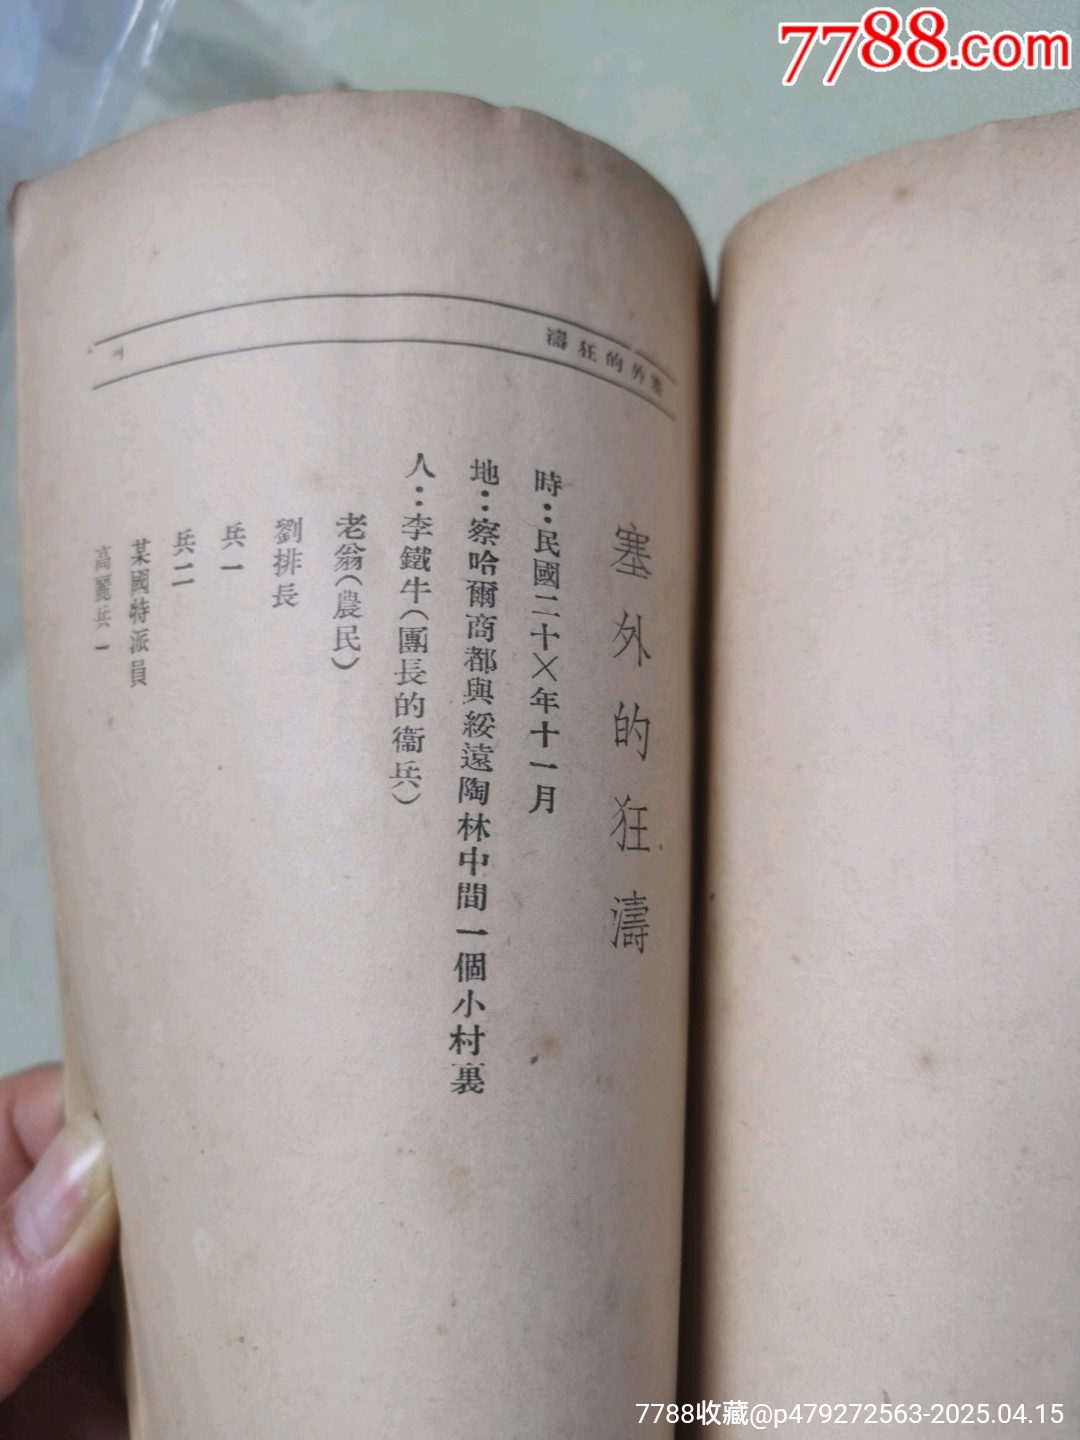 7788.com
塞外的狂濤
塞外的狂濤
時：民國二十×年十一月
地：察哈爾商都與綏遠陶林中間一個小村裏
人：李鐵牛（團長的衞兵）
老翁（農民）
劉排長
兵一
兵二
某國特派員
高麗兵一
7788收藏@p479272563-2025.04.15